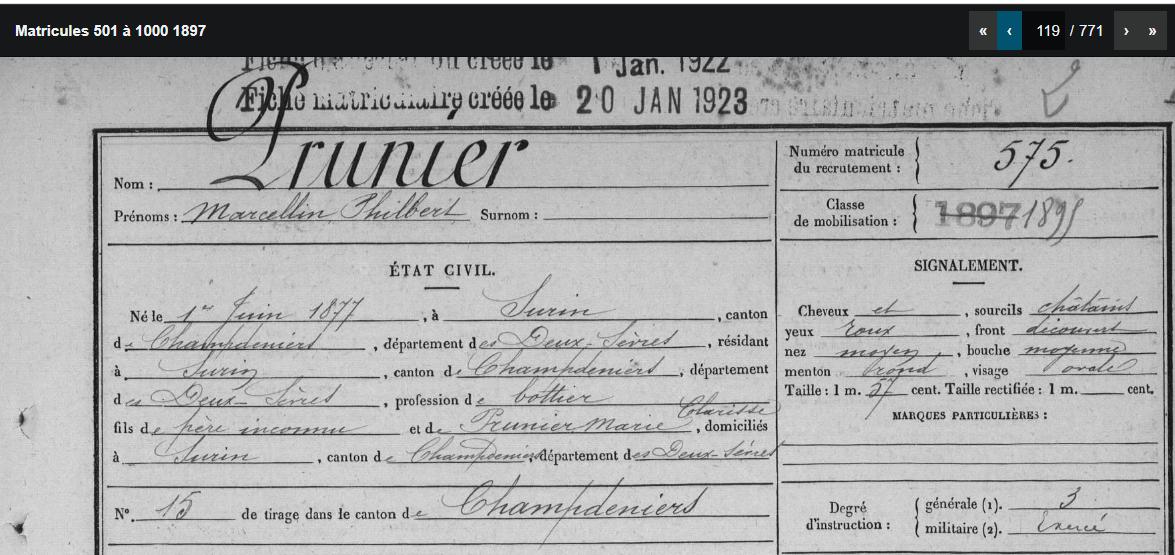 Matricules 501 à 1000 1897
« ‹ 119 / 771 › »
créée le 1 Jan. 1922
Fiche matriculaire créée le 20 JAN 1923
2
Nom : Prunier
Prénoms : Marcellin Philbert Surnom :
Numéro matricule
du recrutement : 575.
Classe
de mobilisation : 1897 1895
ÉTAT CIVIL.
Né le 1er Juin 1877, à Surin, canton
de Champdeniers, département des Deux-Sèvres, résidant
à Surin, canton de Champdeniers, département
des Deux-Sèvres, profession de bottier
Clarisse
fils de père inconnu et de Prunier Marie, domiciliés
à Surin, canton de Champdeniers, département des Deux-Sèvres
N°. 15 de tirage dans le canton de Champdeniers
SIGNALEMENT.
Cheveux et, sourcils châtains
yeux roux, front découvert
nez moyen, bouche moyenne
menton rond, visage ovale
Taille : 1 m. 57 cent. Taille rectifiée : 1 m. cent.
MARQUES PARTICULIÈRES :
Degré
d'instruction :
générale (1). 3
militaire (2). Exercé